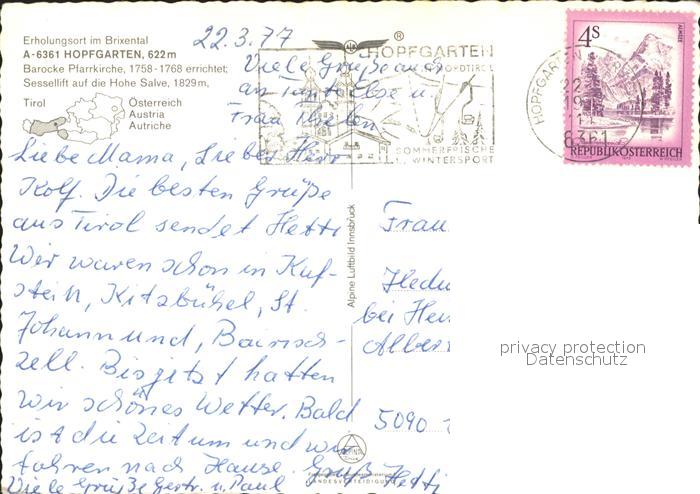 Erholungsort im Brixental
A-6361 HOPFGARTEN, 622 m
Barocke Pfarrkirche, 1758-1768 errichtet;
Sessellift auf die Hohe Salve, 1829 m,
Tirol
Österreich
Austria
Autriche
22.3.77
Viele Grüße auch
an Tante Else u.
Frau
®
HOPFGARTEN
NORDTIROL
SOMMERFRISCHE
WINTERSPORT
HOPFGARTEN
22
6361
4S
ALMSEE
REPUBLIK ÖSTERREICH
Liebe Mama, Lieber Herr
Kolf. Die besten Grüße
aus Tirol sendet Hetti
Wir waren schon in Kuf-
stein, Kitzbühel, St.
Johann und, Bairisch-
zell. Bis jetzt hatten
wir schönes Wetter. Bald
ist die Zeit um und wir
fahren nach Hause. Gruß Hetti
Viele Grüße u. Paul
Alpine Luftbild Innsbruck
Frau
Hedu
bei Hei
Alber
5090
privacy protection
Datenschutz
ALPINE
LANDESVERTEIDIGUNG